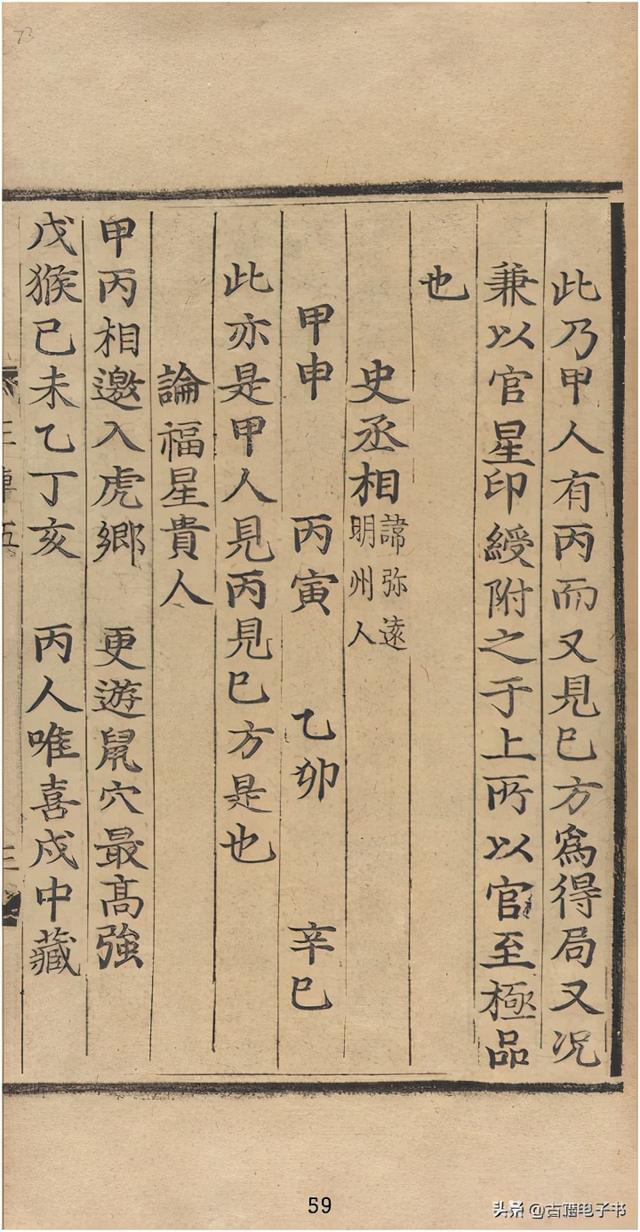 此乃甲人有丙而又見巳方爲得局又况
兼以官星印綬附之于上所以官至極品
也
史丞相 諱弥遠 明州人
甲申 丙寅 乙卯 辛巳
此亦是甲人見丙見巳方是也
論福星貴人
甲丙相邀入虎鄉 更遊鼠穴最高強
戊猴巳未乙丁亥 丙人唯喜戍中藏
59
头条 @古籍电子书